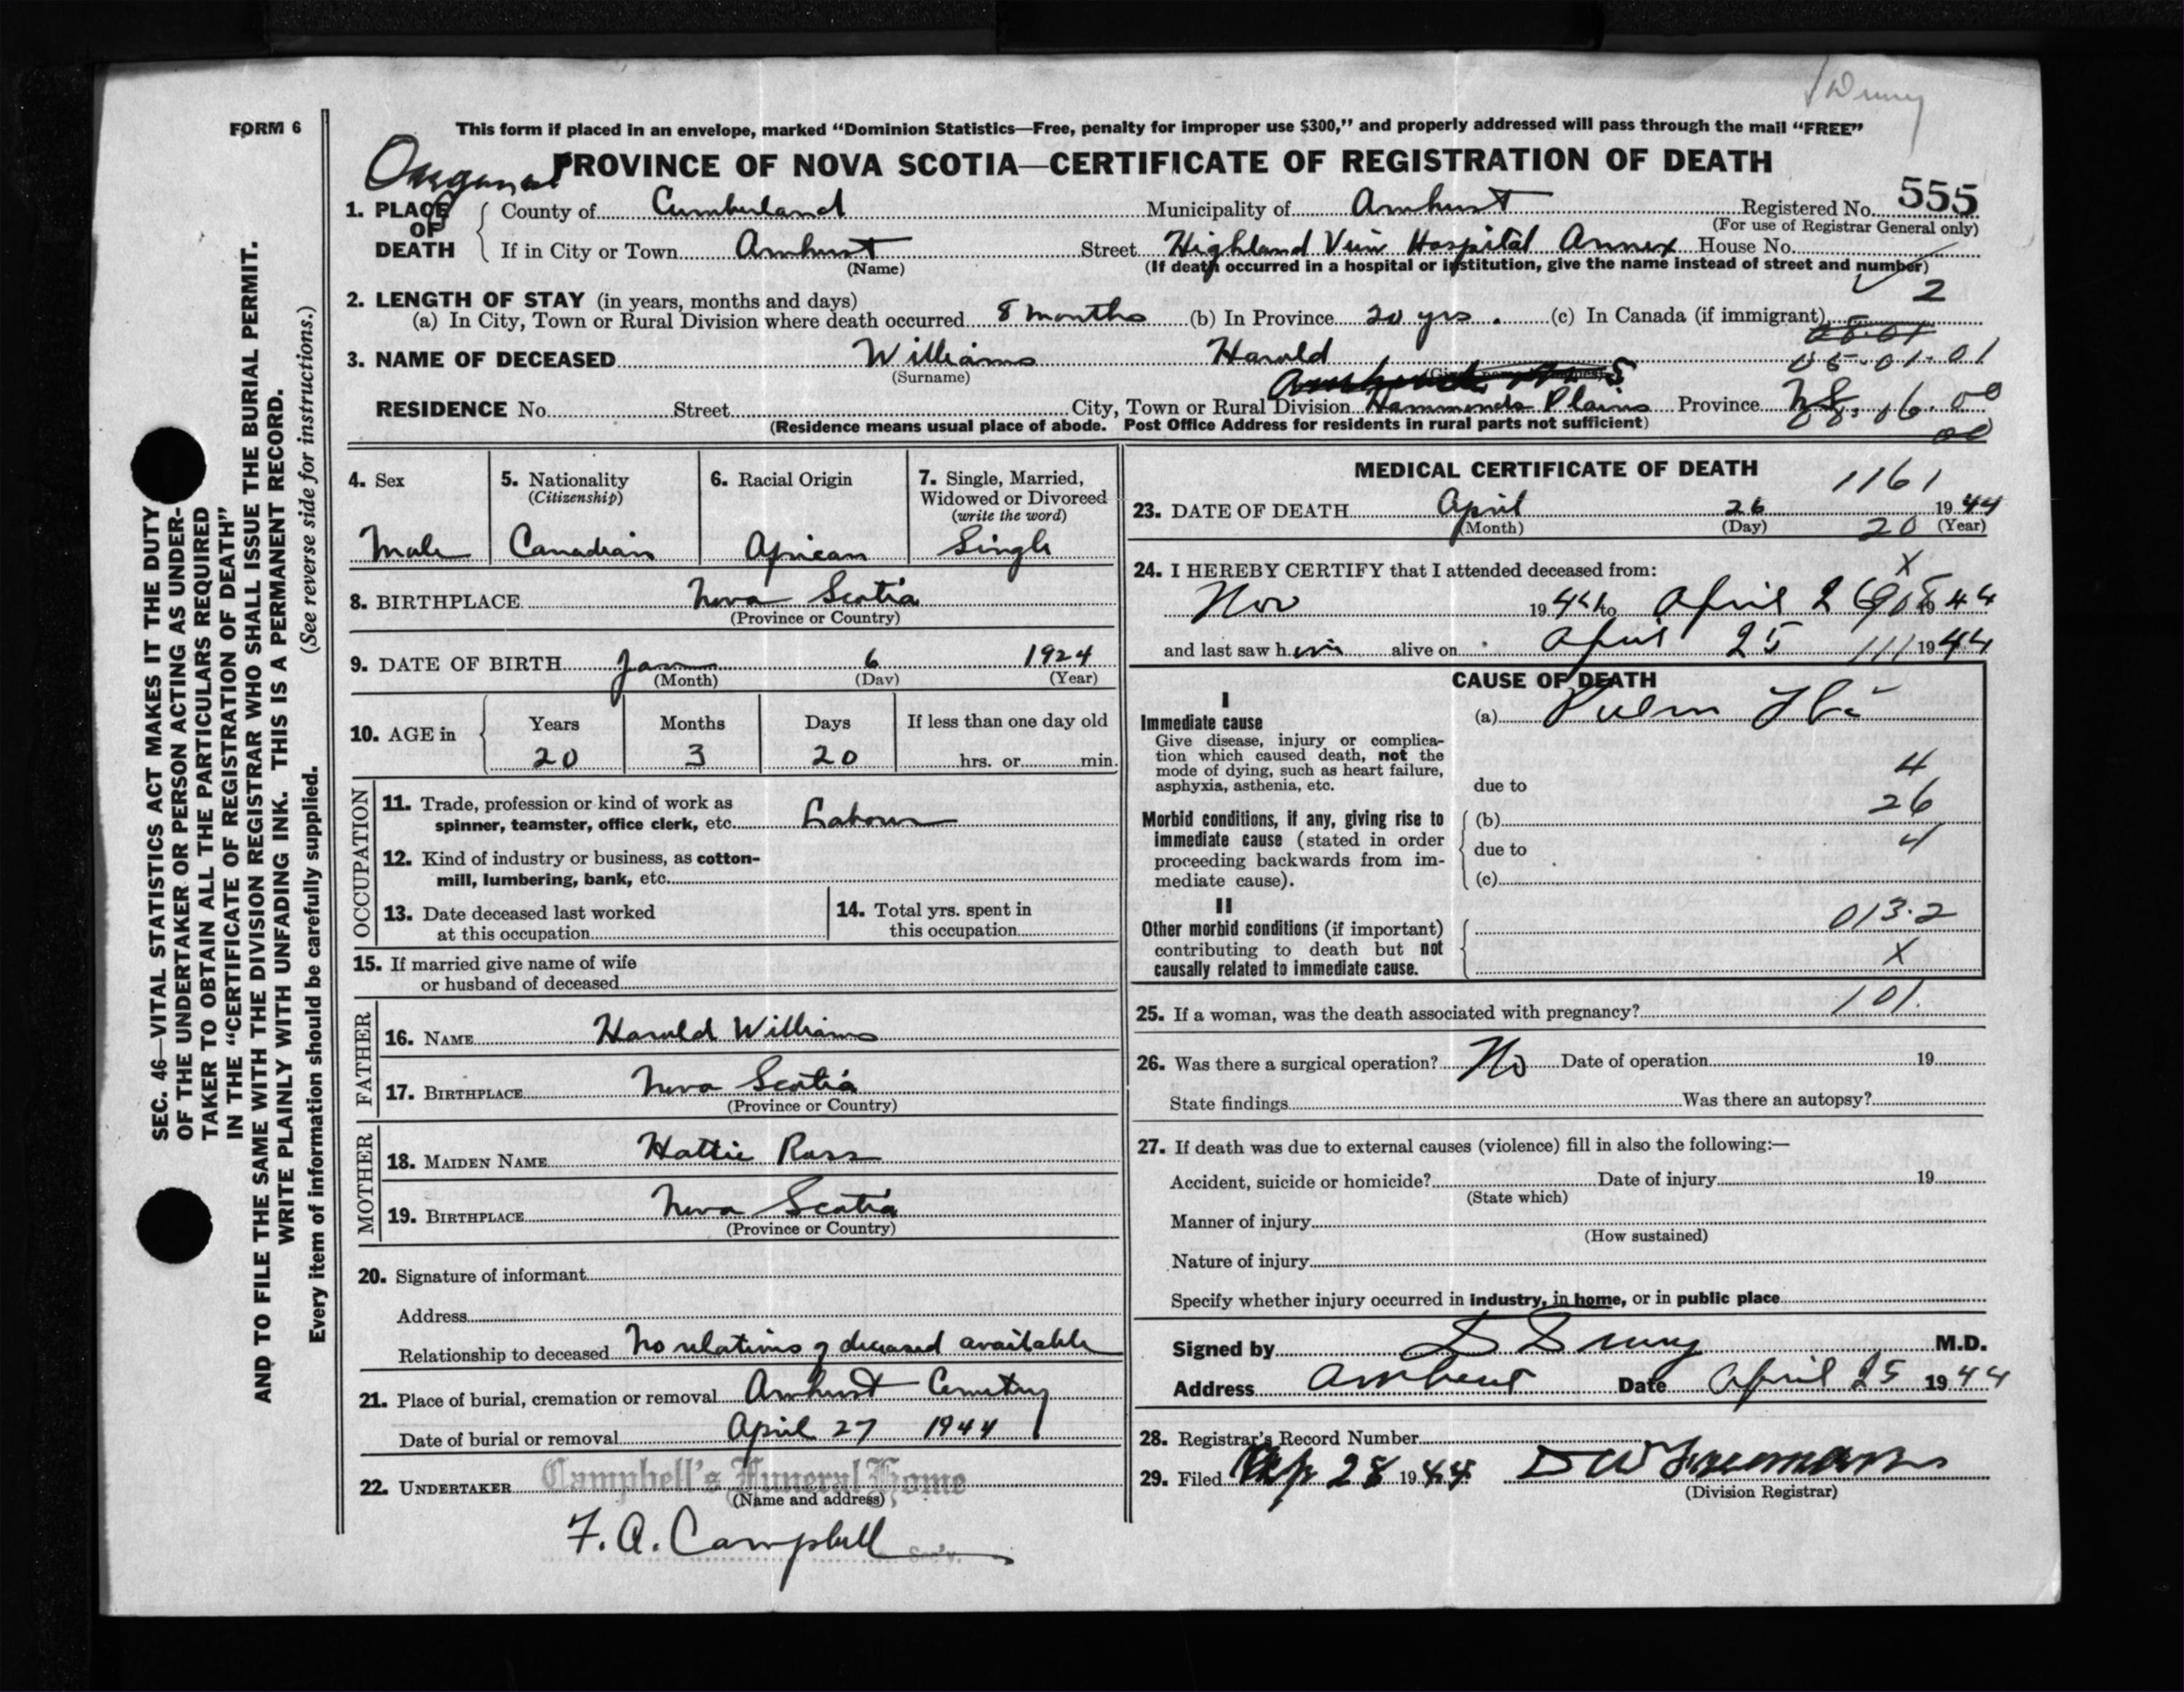 FORM 6
This form if placed in an envelope, marked “Dominion Statistics—Free, penalty for improper use $300,” and properly addressed will pass through the mail “FREE”
PROVINCE OF NOVA SCOTIA—CERTIFICATE OF REGISTRATION OF DEATH
1. PLACE OF DEATH County of Cumberland Municipality of Amherst Registered No. 555
(For use of Registrar General only)
If in City or Town Amherst Street Highland View Hospital Annex House No.
(Name) (If death occurred in a hospital or institution, give the name instead of street and number)
2
2. LENGTH OF STAY (in years, months and days)
(a) In City, Town or Rural Division where death occurred 8 months (b) In Province 20 yrs. (c) In Canada (if immigrant)
3. NAME OF DECEASED Williams Harold 05-01-01
(Surname)
RESIDENCE No. Street City, Town or Rural Division Hammonds Plains Province NS
(Residence means usual place of abode. Post Office Address for residents in rural parts not sufficient) 08.16.00
4. Sex Male
5. Nationality (Citizenship) Canadian
6. Racial Origin African
7. Single, Married, Widowed or Divorced (write the word) Single
8. BIRTHPLACE Nova Scotia
(Province or Country)
9. DATE OF BIRTH Jan 6 1924
(Month) (Day) (Year)
10. AGE in Years Months Days If less than one day old
20 3 20 hrs. or min.
OCCUPATION
11. Trade, profession or kind of work as
spinner, teamster, office clerk, etc. Labour
12. Kind of industry or business, as cotton-
mill, lumbering, bank, etc.
13. Date deceased last worked
at this occupation
14. Total yrs. spent in
this occupation
15. If married give name of wife
or husband of deceased
FATHER
16. NAME Harold Williams
17. BIRTHPLACE Nova Scotia
(Province or Country)
MOTHER
18. MAIDEN NAME Hattie Ross
19. BIRTHPLACE Nova Scotia
(Province or Country)
20. Signature of informant
Address
Relationship to deceased No relations of deceased available
21. Place of burial, cremation or removal Amherst Cemetry
Date of burial or removal April 27 1944
22. UNDERTAKER Campbell's Funeral Home
(Name and address)
F. A. Campbell
Sec'y.
MEDICAL CERTIFICATE OF DEATH
1161
23. DATE OF DEATH April 26 1944
(Month) (Day) (Year)
20
24. I HEREBY CERTIFY that I attended deceased from:
x
Nov 19 to April 26 1944
and last saw him alive on April 25 1944
111
CAUSE OF DEATH
I
Immediate cause (a) Pulm Tbc
Give disease, injury or complica-
tion which caused death, not the
mode of dying, such as heart failure,
asphyxia, asthenia, etc. due to
4
26
4
Morbid conditions, if any, giving rise to (b)
immediate cause (stated in order due to
proceeding backwards from im-
mediate cause). (c)
II
Other morbid conditions (if important) 013.2
contributing to death but not X
causally related to immediate cause.
101.
25. If a woman, was the death associated with pregnancy?
26. Was there a surgical operation? No Date of operation 19
State findings Was there an autopsy?
27. If death was due to external causes (violence) fill in also the following:—
Accident, suicide or homicide? Date of injury 19
(State which)
Manner of injury
(How sustained)
Nature of injury
Specify whether injury occurred in industry, in home, or in public place
Signed by M.D.
Address Amherst Date April 25 1944
28. Registrar's Record Number
29. Filed Apr 28 1944
(Division Registrar)
SEC. 46—VITAL STATISTICS ACT MAKES IT THE DUTY
OF THE UNDERTAKER OR PERSON ACTING AS UNDER-
TAKER TO OBTAIN ALL THE PARTICULARS REQUIRED
IN THE “CERTIFICATE OF REGISTRATION OF DEATH”
AND TO FILE THE SAME WITH THE DIVISION REGISTRAR WHO SHALL ISSUE THE BURIAL PERMIT.
WRITE PLAINLY WITH UNFADING INK. THIS IS A PERMANENT RECORD.
Every item of information should be carefully supplied. (See reverse side for instructions.)